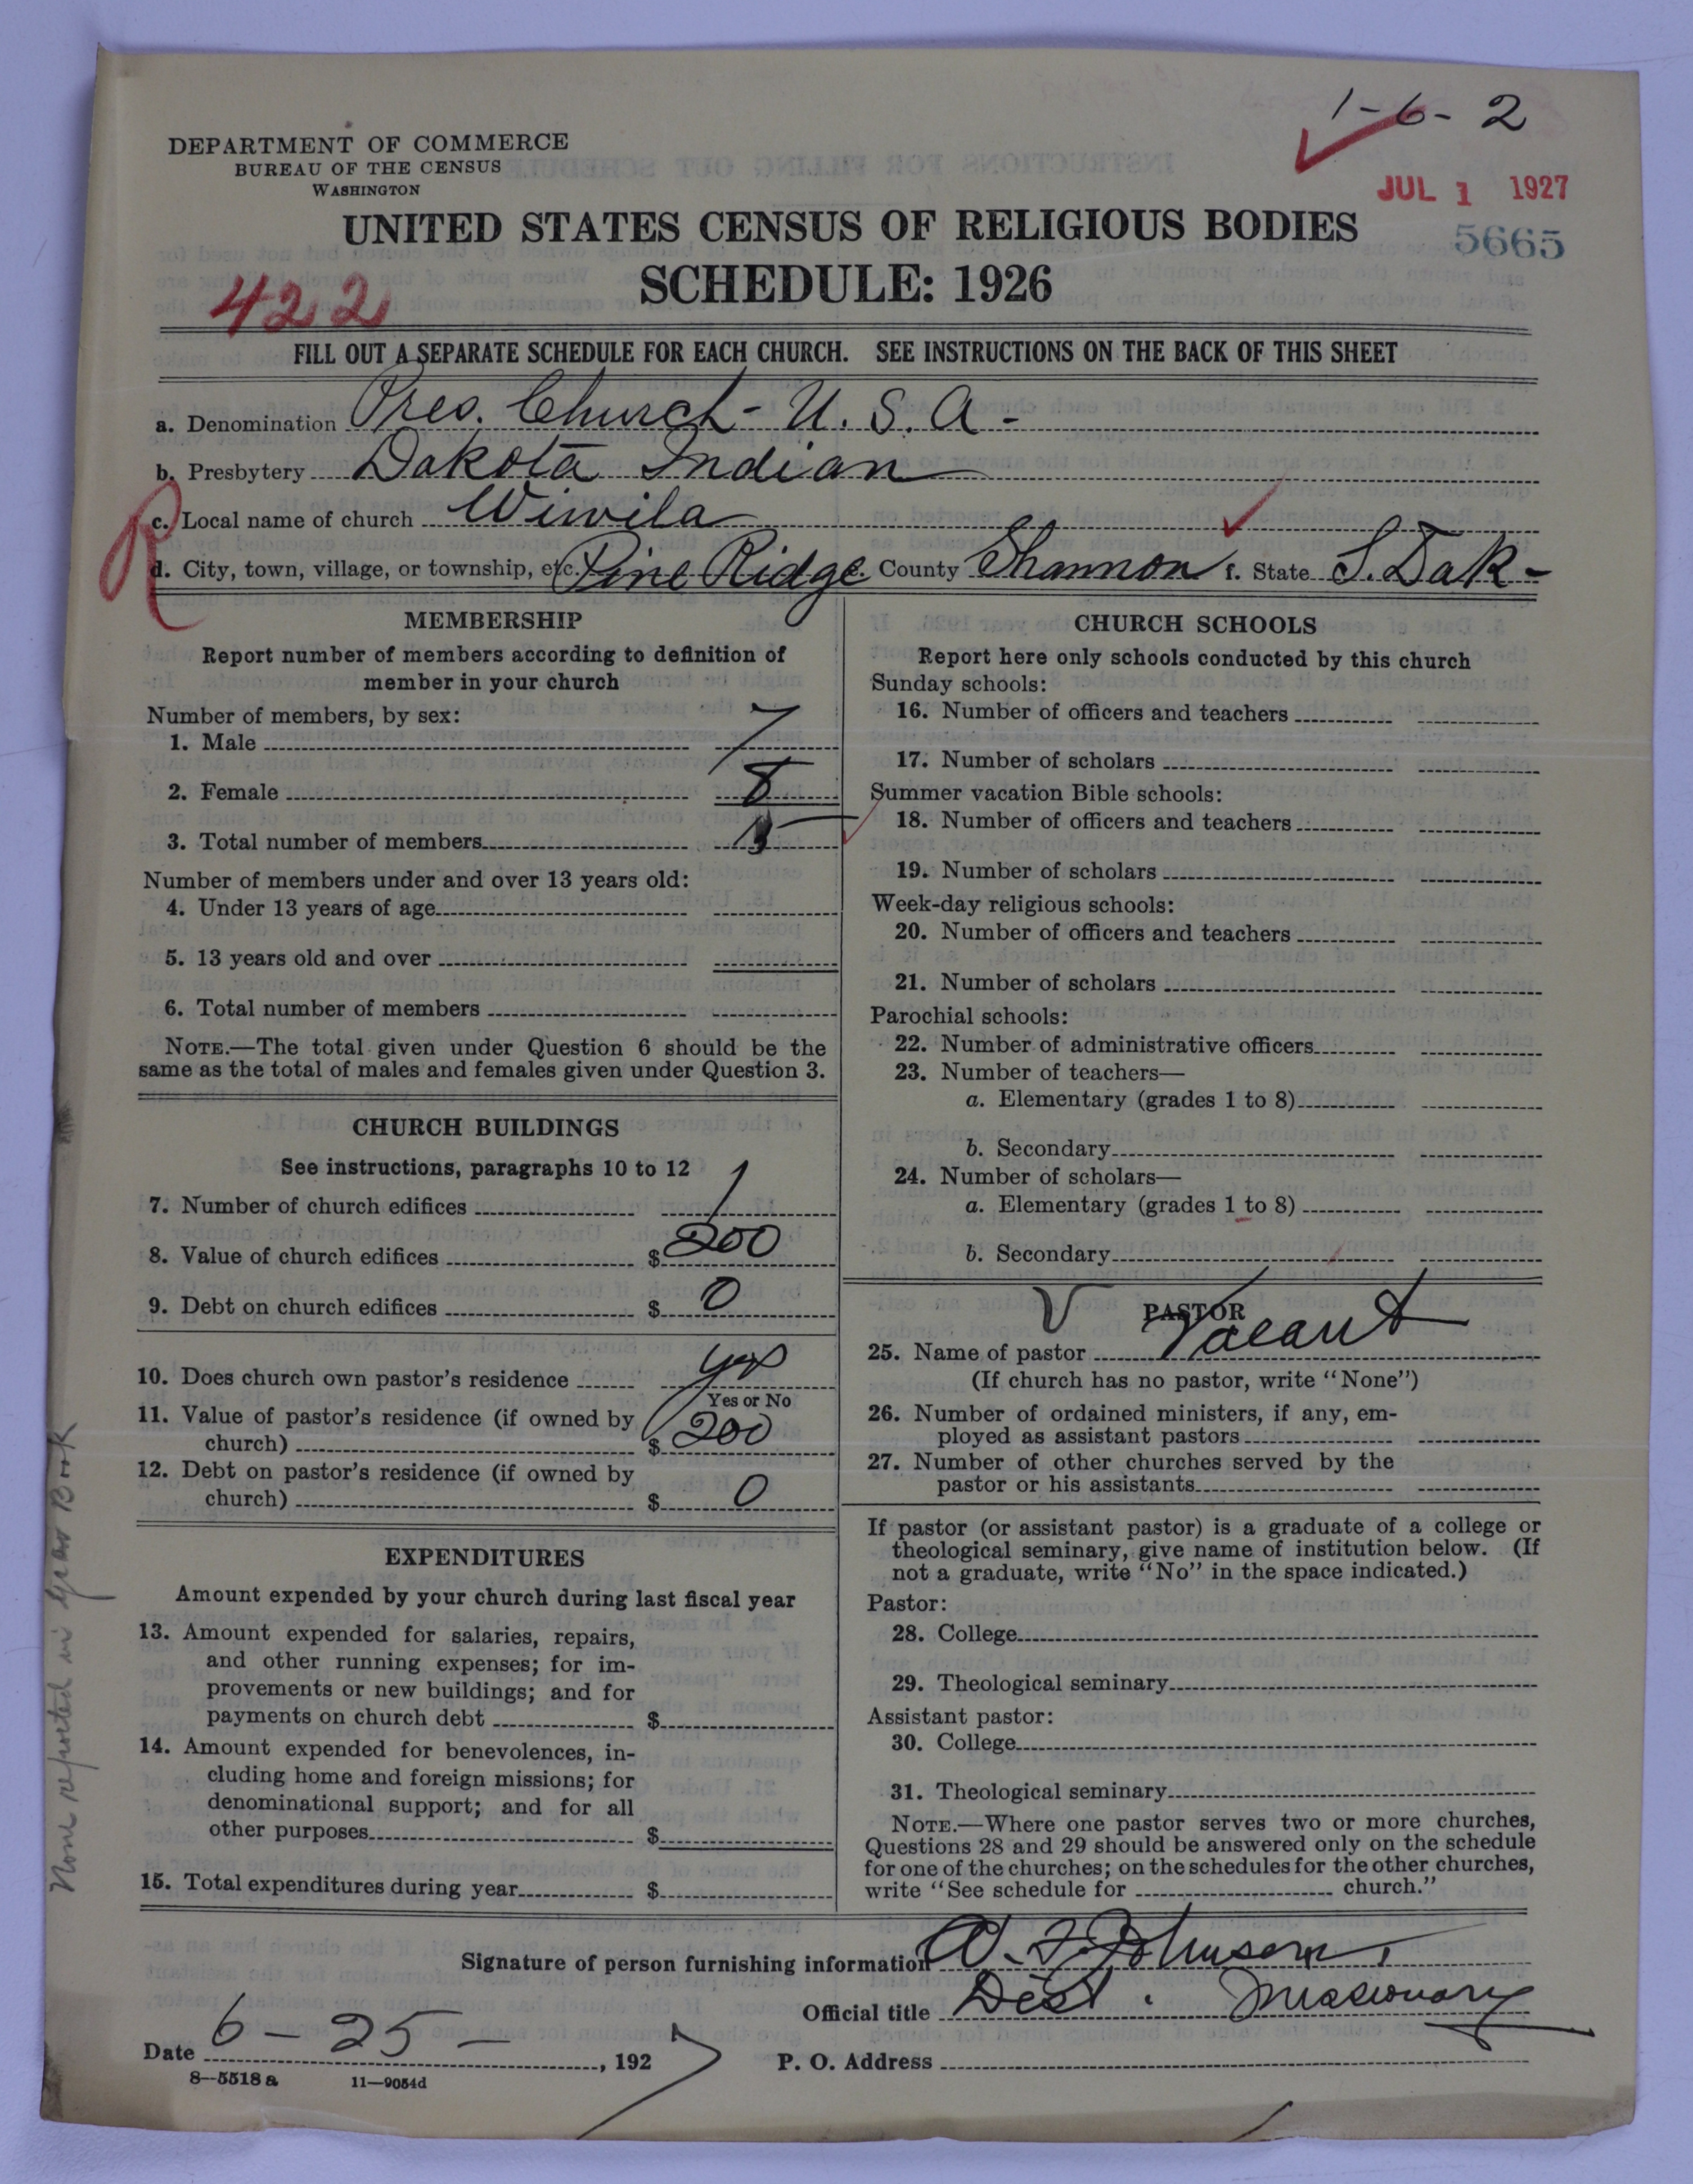 1-6-2
DEPARTMENT OF COMMERCE
BUREAU OF THE CENSUS
WASHINGTON
JUL 1 1927
UNITED STATES CENSUS OF RELIGIOUS BODIES
5665
SCHEDULE: 1926
422
FILL OUT A SEPARATE SCHEDULE FOR EACH CHURCH. SEE INSTRUCTIONS ON THE BACK OF THIS SHEET
a. Denomination Pres. Church - U.S.A -
b. Presbytery Dakota Indian
R
c. Local name of church Wiwila
d. City, town, village, or township, etc. Pine Ridge e. County Shannon f. State S. Dak-
MEMBERSHIP
Report number of members according to definition of
member in your church
Number of members, by sex:
1. Male 7
2. Female 8
3. Total number of members 15
Number of members under and over 13 years old:
4. Under 13 years of age
5. 13 years old and over
6. Total number of members
NOTE.—The total given under Question 6 should be the
same as the total of males and females given under Question 3.
CHURCH BUILDINGS
See instructions, paragraphs 10 to 12
7. Number of church edifices 1
8. Value of church edifices $ 200
9. Debt on church edifices $ 0
10. Does church own pastor's residence yes
Yes or No
11. Value of pastor's residence (if owned by
church) $ 200
12. Debt on pastor's residence (if owned by
church) $ 0
EXPENDITURES
Amount expended by your church during last fiscal year
13. Amount expended for salaries, repairs,
and other running expenses; for im-
provements or new buildings; and for
payments on church debt $
14. Amount expended for benevolences, in-
cluding home and foreign missions; for
denominational support; and for all
other purposes $
15. Total expenditures during year $
None reported in Year Book
CHURCH SCHOOLS
Report here only schools conducted by this church
Sunday schools:
16. Number of officers and teachers
17. Number of scholars
Summer vacation Bible schools:
18. Number of officers and teachers
19. Number of scholars
Week-day religious schools:
20. Number of officers and teachers
21. Number of scholars
Parochial schools:
22. Number of administrative officers
23. Number of teachers—
a. Elementary (grades 1 to 8)
b. Secondary
24. Number of scholars—
a. Elementary (grades 1 to 8)
b. Secondary
V PASTOR
25. Name of pastor Vacant
(If church has no pastor, write "None")
26. Number of ordained ministers, if any, em-
ployed as assistant pastors
27. Number of other churches served by the
pastor or his assistants
If pastor (or assistant pastor) is a graduate of a college or
theological seminary, give name of institution below. (If
not a graduate, write "No" in the space indicated.)
Pastor:
28. College
29. Theological seminary
Assistant pastor:
30. College
31. Theological seminary
NOTE.—Where one pastor serves two or more churches,
Questions 28 and 29 should be answered only on the schedule
for one of the churches; on the schedules for the other churches,
write "See schedule for church."
Signature of person furnishing information A. F. Johnson
Official title Dist. Missionary
Date 6-25-, 1927
P. O. Address
8—5518 a 11—9054d